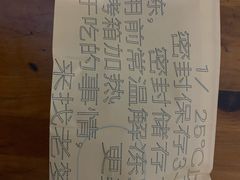 1/25°C
密封保存3
冻， 密封储存
用前常温解冻
烤箱加热 更
于吃的事情，
来找老